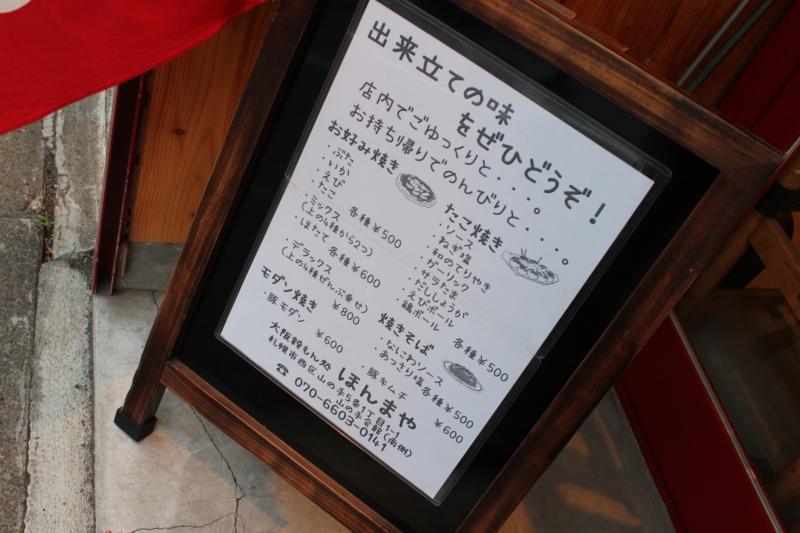 出来立ての味
をぜひどうぞ！
店内でごゆっくりと・・・。
お持ち帰りでのんびりと・・・。
お好み焼き
・ぶた
・いか
・えび
・たこ
各種￥500
・ミックス
(上の4種から2つ)
・ほたて 各種￥600
・デラックス
(上の4種ぜんぶ乗せ)
￥800
モダン焼き
豚モダン
￥600
たこ焼き
・ソース
・ねぎ塩
・和のてりやき
・ガーリック
・サラたま
・だししょうが
・えびボール
・鶏ボール
各種￥500
焼きそば
・なにわソース
・あっさり塩 各種￥500
豚キムチ
￥600
大阪粉もん処 ほんまや
札幌市西区山の手5条1丁目1-1
山の手会館(南側)
☎ 070-6603-0141